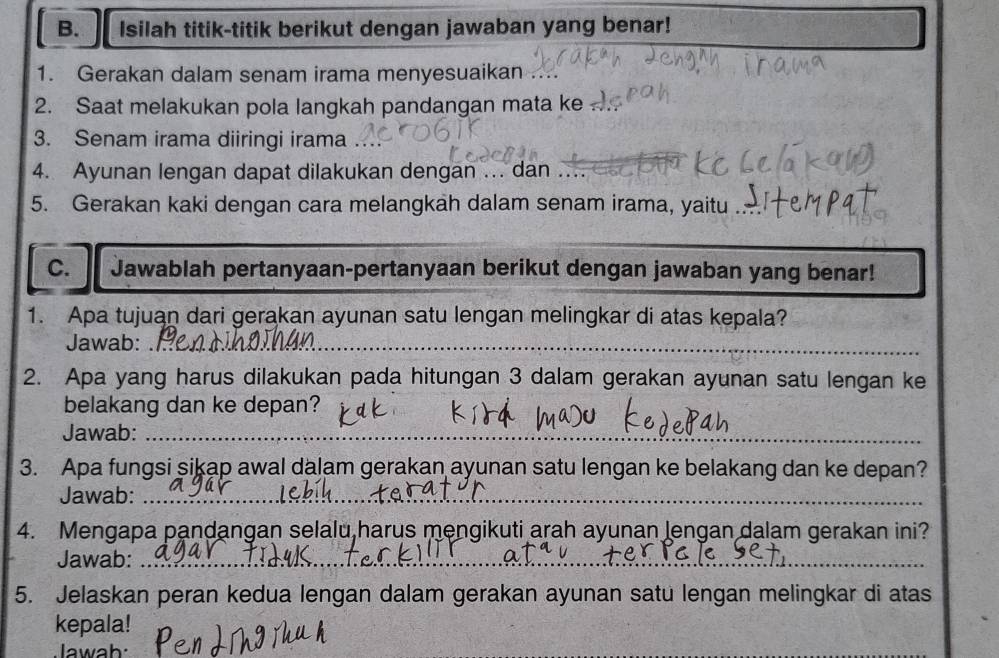 B. Isilah titik-titik berikut dengan jawaban yang benar!
1. Gerakan dalam senam irama menyesuaikan .... gerakan dengan irama
2. Saat melakukan pola langkah pandangan mata ke .... depan
3. Senam irama diiringi irama .... aerobik
4. Ayunan lengan dapat dilakukan dengan ... dan .... kedepan ke belakang
5. Gerakan kaki dengan cara melangkah dalam senam irama, yaitu .... ditempat
C. Jawablah pertanyaan-pertanyaan berikut dengan jawaban yang benar!
1. Apa tujuan dari gerakan ayunan satu lengan melingkar di atas kepala?
Jawab: Pendinginan
2. Apa yang harus dilakukan pada hitungan 3 dalam gerakan ayunan satu lengan ke
belakang dan ke depan?
Jawab: kaki kiri maju kedepan
3. Apa fungsi sikap awal dalam gerakan ayunan satu lengan ke belakang dan ke depan?
Jawab: agar lebih teratur
4. Mengapa pandangan selalu harus mengikuti arah ayunan lengan dalam gerakan ini?
Jawab: agar tidak terkilir atau terpeleset
5. Jelaskan peran kedua lengan dalam gerakan ayunan satu lengan melingkar di atas
kepala!
Jawab: Pendinginan